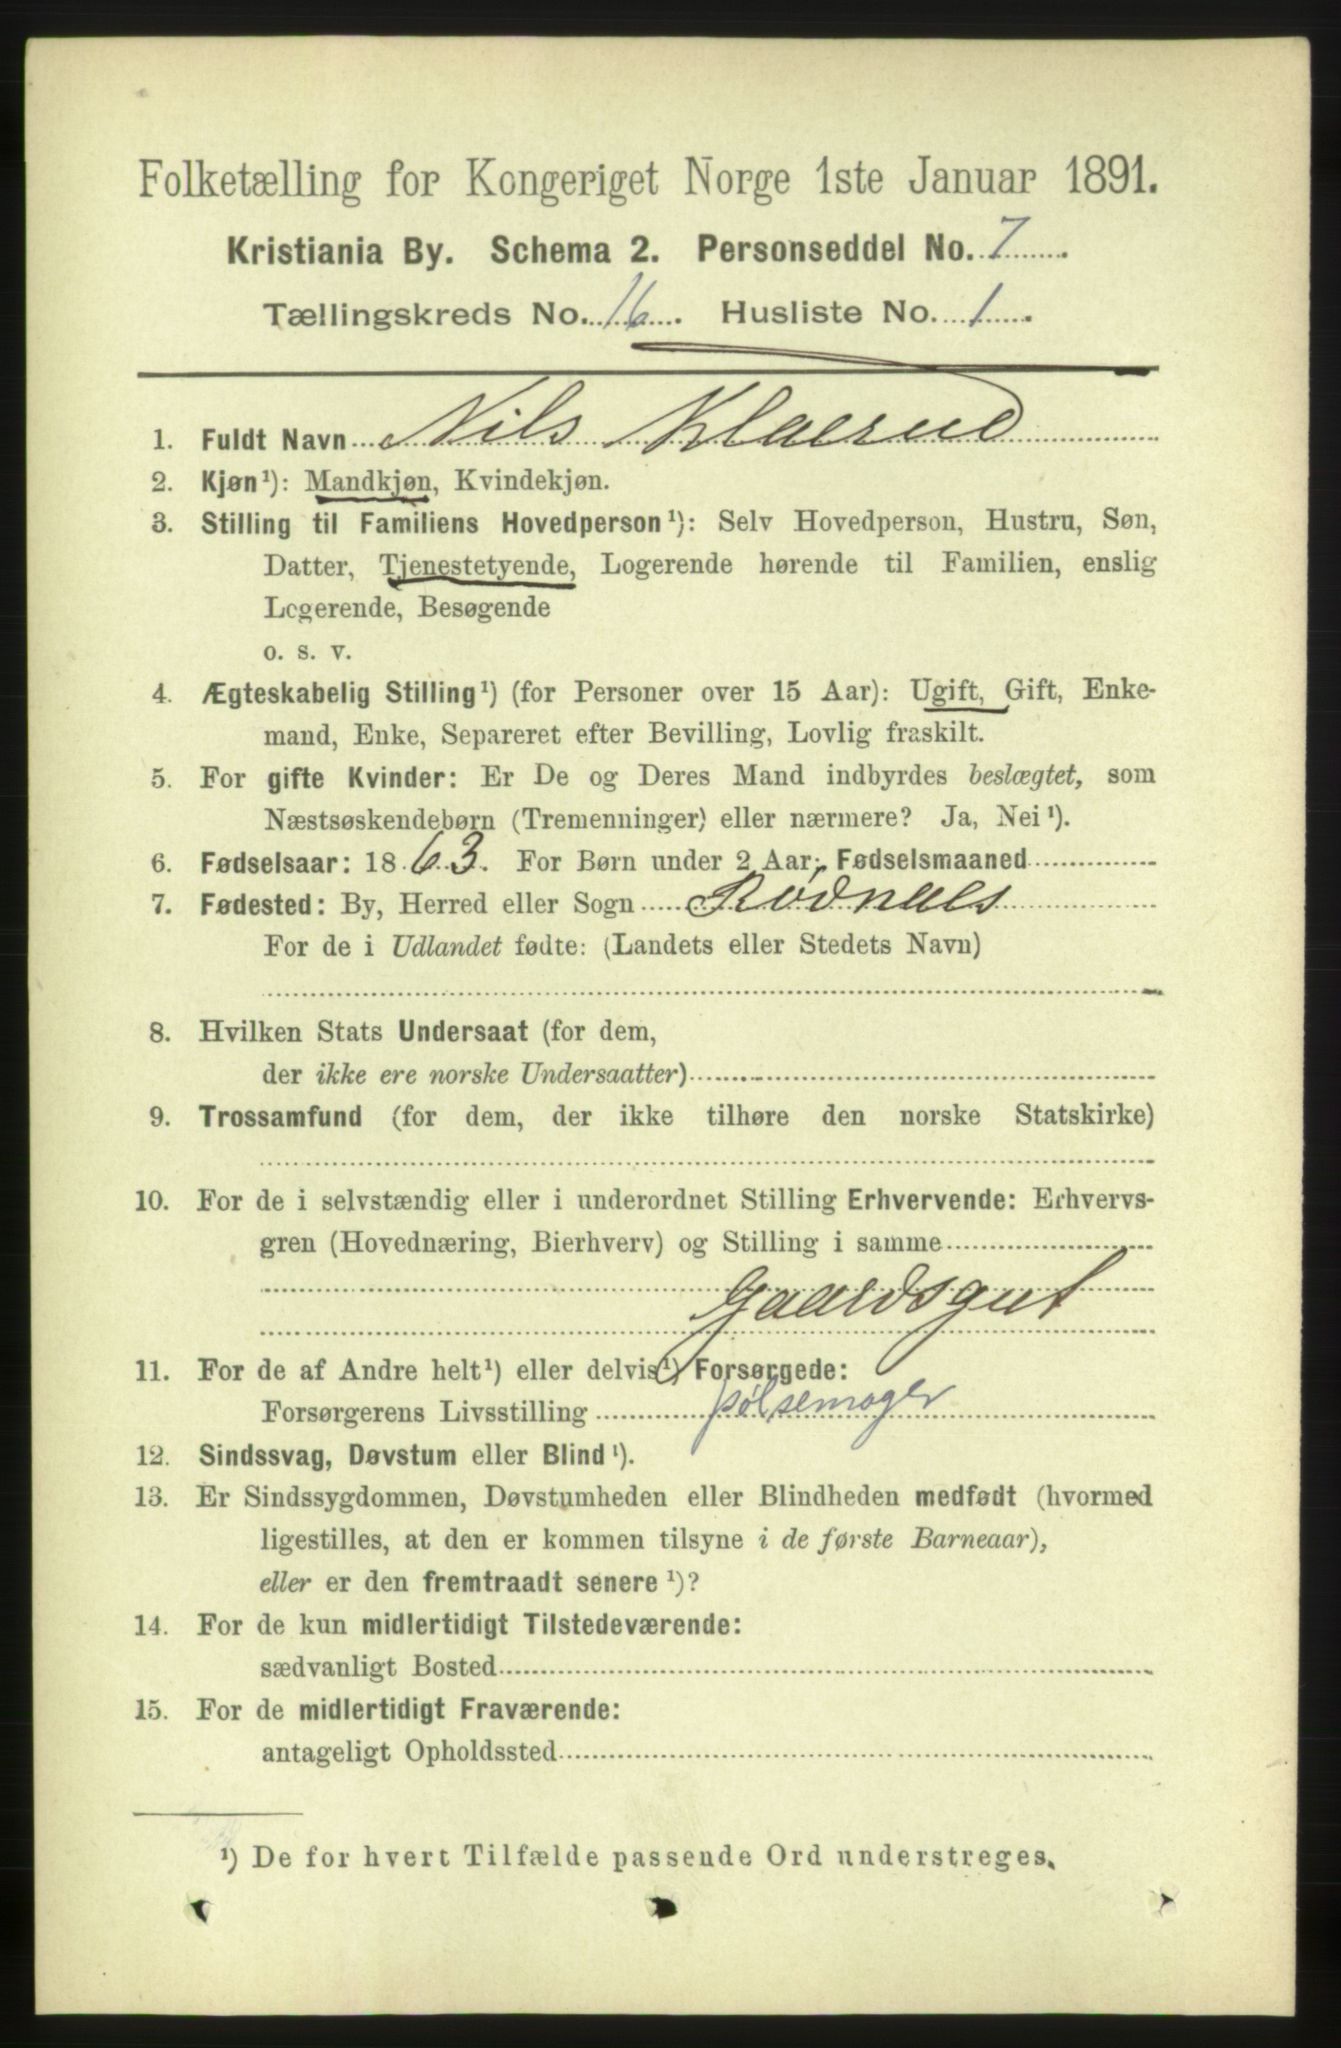 Folketælling for Kongeriget Norge 1ste Januar 1891.
Kristiania By. Schema 2. Personseddel No. 7
Tællingskreds No. 16. Husliste No. 1.
1. Fuldt Navn Nils Klaerud
2. Kjøn¹): Mandkjøn, Kvindekjøn.
3. Stilling til Familiens Hovedperson¹): Selv Hovedperson, Hustru, Søn,
Datter, Tjenestetyende, Logerende hørende til Familien, enslig
Logerende, Besøgende
o. s. v.
4. Ægteskabelig Stilling¹) (for Personer over 15 Aar): Ugift, Gift, Enke-
mand, Enke, Separeret efter Bevilling, Lovlig fraskilt.
5. For gifte Kvinder: Er De og Deres Mand indbyrdes beslægtet, som
Næstsøskendebørn (Tremenninger) eller nærmere? Ja, Nei¹).
6. Fødselsaar: 1863. For Børn under 2 Aar: Fødselsmaaned
7. Fødested: By, Herred eller Sogn Rødnæs
For de i Udlandet fødte: (Landets eller Stedets Navn)
8. Hvilken Stats Undersaat (for dem,
der ikke ere norske Undersaatter)
9. Trossamfund (for dem, der ikke tilhøre den norske Statskirke)
10. For de i selvstændig eller i underordnet Stilling Erhvervende: Erhvervs-
gren (Hovednæring, Bierhverv) og Stilling i samme
Gaardsgut
11. For de af Andre helt¹) eller delvis¹) Forsørgede:
Forsørgerens Livsstilling pølsemager
12. Sindssvag, Døvstum eller Blind¹).
13. Er Sindssygdommen, Døvstumheden eller Blindheden medfødt (hvormed
ligestilles, at den er kommen tilsyne i de første Barneaar),
eller er den fremtraadt senere¹)?
14. For de kun midlertidigt Tilstedeværende:
sædvanligt Bosted
15. For de midlertidigt Fraværende:
antageligt Opholdssted
¹) De for hvert Tilfælde passende Ord understreges.